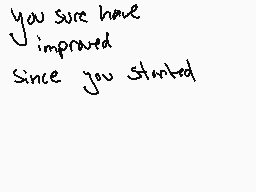 you sure have
improved
since you started